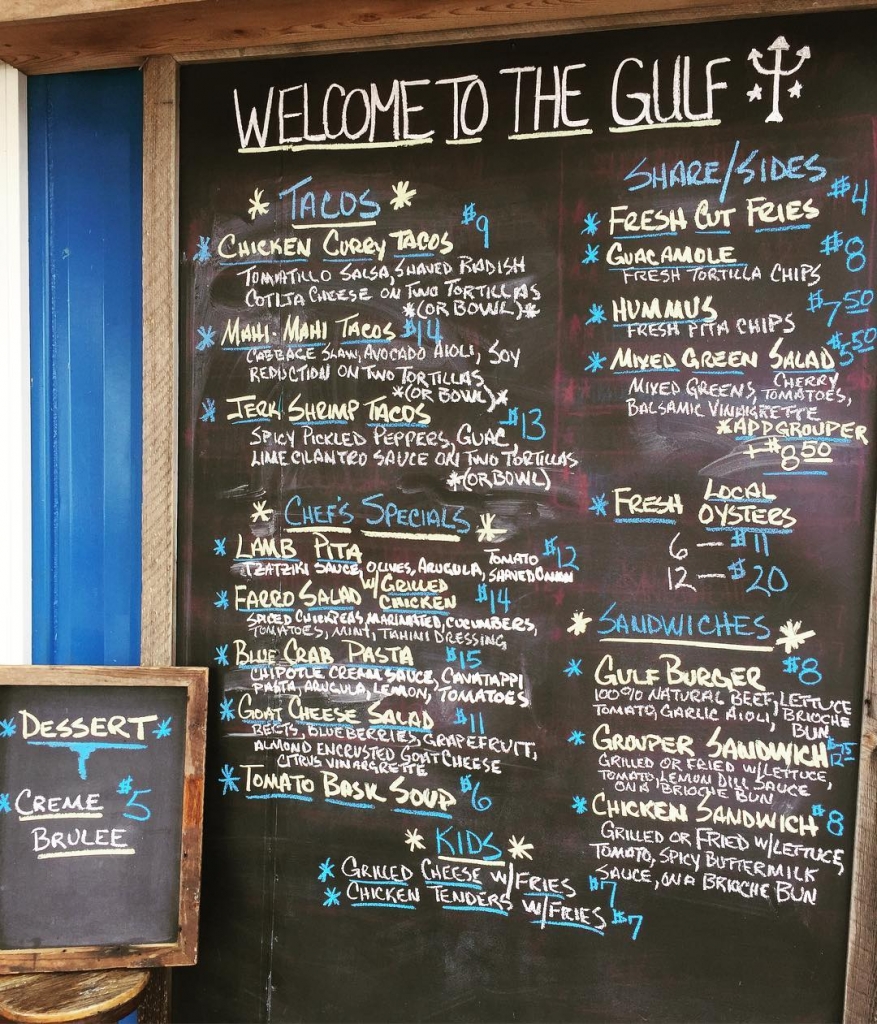 WELCOME TO THE GULF
* TACOS *
* CHICKEN CURRY TACOS $9
TOMATILLO SALSA, SHAVED RADISH
COTIJA CHEESE ON TWO TORTILLAS
*(OR BOWL)*
* MAHI-MAHI TACOS $14
CABBAGE SLAW, AVOCADO AIOLI, SOY
REDUCTION ON TWO TORTILLAS
*(OR BOWL)*
* JERK SHRIMP TACOS $13
SPICY PICKLED PEPPERS, GUAC,
LIME CILANTRO SAUCE ON TWO TORTILLAS
*(OR BOWL)
* CHEF'S SPECIALS *
* LAMB PITA $12
TZATZIKI SAUCE, OLIVES, ARUGULA, TOMATO SHAVED ONION
* FARRO SALAD W/ GRILLED CHICKEN $14
SPICED CHICKPEAS, MARINATED, CUCUMBERS,
TOMATOES, MINT, TAHINI DRESSING,
* BLUE CRAB PASTA $15
CHIPOTLE CREAM SAUCE, CAVATAPPI
PASTA, ARUGULA, LEMON, TOMATOES
* GOAT CHEESE SALAD $11
BEETS, BLUEBERRIES, GRAPEFRUIT,
ALMOND ENCRUSTED GOAT CHEESE
CITRUS VINAIGRETTE
* TOMATO BASK SOUP $6
* KIDS *
* GRILLED CHEESE W/ FRIES $7
* CHICKEN TENDERS W/ FRIES $7
SHARE/SIDES
* FRESH CUT FRIES $4
* GUACAMOLE $8
FRESH TORTILLA CHIPS
* HUMMUS $7.50
FRESH PITA CHIPS
* MIXED GREEN SALAD $5.50
MIXED GREENS, CHERRY TOMATOES,
BALSAMIC VINAIGRETTE
* ADD GROUPER
+ $8.50
* FRESH LOCAL OYSTERS
6 — $11
12 — $20
* SANDWICHES *
* GULF BURGER $8
100% NATURAL BEEF, LETTUCE
TOMATO, GARLIC AIOLI, BRIOCHE
BUN
* GROUPER SANDWICH
GRILLED OR FRIED W/ LETTUCE,
TOMATO, LEMON DILL SAUCE
ON A BRIOCHE BUN
* CHICKEN SANDWICH $8
GRILLED OR FRIED W/ LETTUCE,
TOMATO, SPICY BUTTERMILK
SAUCE, ON A BRIOCHE BUN
* DESSERT *
* CREME $5
BRULEE